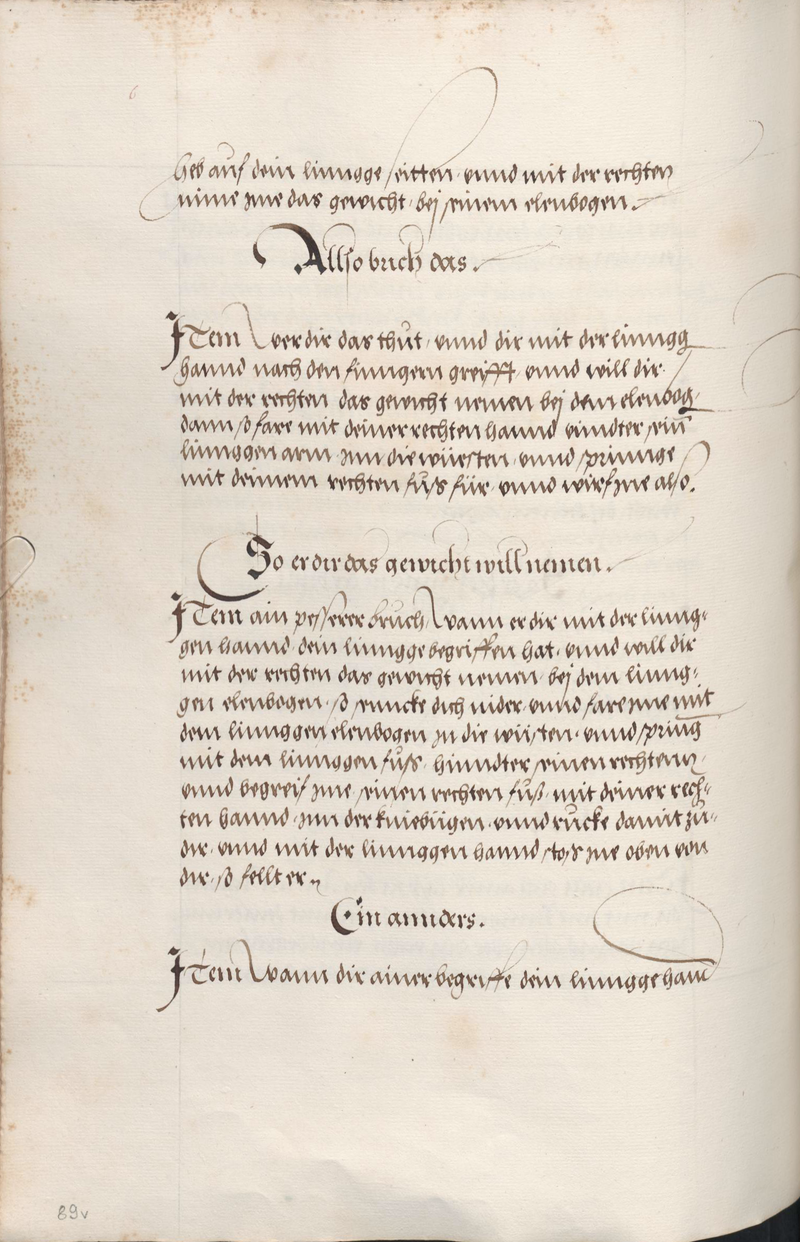 heb auf dein linngge seitten, vnnd mit der rechten
nime jne das gewicht, bej seinem elenbogen.
Allso bruch das.
Jtem wer dir das thut, vnnd dir mit der linngg
hannd nach den finngern greifft, vnnd will dir
mit der rechten das gewicht nemen bej dem elenbog
dann, so fare mit deiner rechten hannd vnndter sein̄
linnggen arm jnn die wüesten, vnnd sprinnge
mit deinem rechten fuſs für, vnnd wirf jne also.
So er dir das gewicht will nemen.
Jtem ain pesserer bruch, wann er dir mit der linng-
gen hannd dein linngge begriffen hat, vnnd will dir
mit der rechten das gewicht nemen, bej dem linng-
gen elenbogen, so senncke dich nider, vnnd fare jme mit
dem linnggen elenbogen in die wüesten, vnnd spring
mit dem linnggen fuſs, hinndter seinen rechtenn,
vnnd begreif jme seinen rechten fuß, mit deiner rech-
ten hannd, jnn der kniebügen, vnnd rucke damit zu-
dir, vnnd mit der linnggen hannd stoſs jne oben von
dir, so fellt er
Ein annders.
Jtem wann dir ainer begriffe dein linngge hann̄
89v